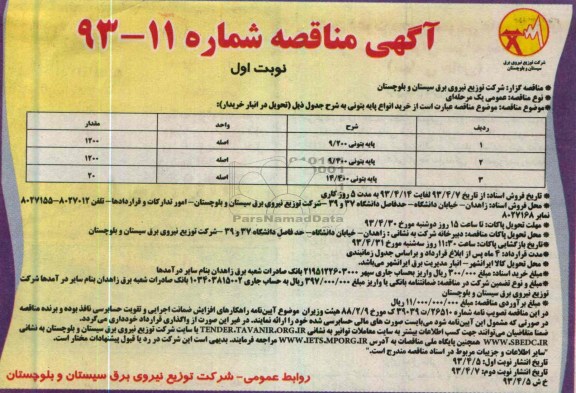 آگهی مناقصه شماره ۱۱-۹۳
نوبت اول
شرکت توزیع نیروی برق
سیستان و بلوچستان
مناقصه گزار: شرکت توزیع نیروی برق سیستان و بلوچستان
نوع مناقصه: عمومی یک مرحله‌ای
موضوع مناقصه: موضوع مناقصه عبارت است از خرید انواع پایه بتونی به شرح جدول ذیل (تحویل در انبار خریدار):
ردیف شرح واحد مقدار
۱ پایه بتونی ۹/۲۰۰ اصله ۱۲۰۰
۲ پایه بتونی ۹/۴۰۰ اصله ۱۲۰۰
۳ پایه بتونی ۱۴/۴۰۰ اصله ۲۰
ParsNamadData
تاریخ فروش اسناد: از تاریخ ۹۳/۴/۷ لغایت ۹۳/۴/۱۴ به مدت ۵ روز کاری
محل فروش اسناد: زاهدان- خیابان دانشگاه- حدفاصل دانشگاه ۳۷ و ۳۹ -شرکت توزیع نیروی برق سیستان و بلوچستان- امور تدارکات و قراردادها- تلفن ۸۰۲۷۰۱۲-۸۰۲۷۱۵۵
نمابر ۸۰۲۷۱۶۸
مهلت تحویل پاکات: تا ساعت ۱۵ روز دوشنبه مورخ ۹۳/۴/۳۰
محل تحویل پاکات مناقصه: دبیرخانه شرکت به نشانی: زاهدان- خیابان دانشگاه- حد فاصل دانشگاه ۳۷ و ۳۹- شرکت توزیع نیروی برق سیستان و بلوچستان
تاریخ بازگشایی پاکات: ساعت ۱۱:۳۰ روز سه‌شنبه مورخ ۹۳/۴/۳۱
مدت قرارداد: ۴ ماه پس از ابلاغ قرارداد و براساس جدول زمانبندی
محل تحویل کالا ایرانشهر- انبار مدیریت برق ایرانشهر می‌باشد.
مبلغ خرید اسناد: مبلغ ۳۰۰/۰۰۰ ریال واریز بحساب جاری سپهر ۲۱۹۵۱۲۲۶۰۳۰۰۰ بانک صادرات شعبه برق زاهدان بنام سایر درآمدها
مبلغ و نوع تضمین شرکت در مناقصه: ضمانتنامه بانکی یا واریز مبلغ ۳۹۷/۰۰۰/۰۰۰ ریال به حساب جاری ۱۰۳۴۰۳۸۱۵۰۰۲ بانک صادرات شعبه برق زاهدان بنام سایر در آمدها شرکت
توزیع نیروی برق سیستان و بلوچستان
مبلغ برآوردی مناقصه: مبلغ ۱۱/۰۰۰/۰۰۰/۰۰۰ ریال
در این مناقصه تصویب نامه شماره ۷۶۵۱۰/ت ۳۹۰۳۹ک مورخ ۸۸/۲/۹ هیئت وزیران موضوع آیین‌نامه راهکارهای افزایش ضمانت اجرایی و تقویت حسابرسی نافذ بوده و برنده مناقصه
در صورتی که مشمول این آیین‌نامه شود می‌بایست صورت های مالی حسابرسی شده خود را ارائه نمایند. در غیر این صورت از واگذاری قرارداد خودداری می‌گردد.
ضمنا متقاضیان می‌توانند جهت کسب اطلاعات بیشتر به سایت معاملات توانیر به نشانی TENDER.TAVANIR.ORG.IR یا سایت شرکت توزیع نیروی برق سیستان و بلوچستان به نشانی
WWW.SBEDC.IR همچنین پایگاه ملی مناقصات به آدرس WWW.IETS.MPORG.IR مراجعه فرمایند. بدیهی است این شرکت در رد یا قبول پیشنهادات مختار است.
"سایر اطلاعات و جزییات مربوط در اسناد مناقصه مندرج است."
تاریخ انتشار نوبت اول: ۹۳/۴/۵
تاریخ انتشار نوبت دوم: ۹۳/۴/۷
خ ش ۹۳/۴/۵
روابط عمومی- شرکت توزیع نیروی برق سیستان و بلوچستان